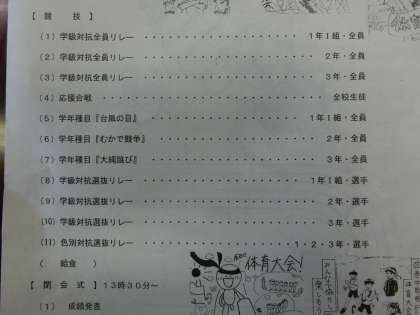 【 競 技 】
(1) 学級対抗全員リレー ・・・・・・・・・・・・・・・・・・ 1年1組・全員
(2) 学級対抗全員リレー ・・・・・・・・・・・・・・・・・・ 2年・全員
(3) 学級対抗全員リレー ・・・・・・・・・・・・・・・・・・ 3年・全員
(4) 応援合戦 ・・・・・・・・・・・・・・・・・・ 全校生徒
(5) 学年種目『台風の目』 ・・・・・・・・・・・・・・・・・・ 1年1組・全員
(6) 学年種目『むかで競争』 ・・・・・・・・・・・・・・・・・・ 2年・全員
(7) 学年種目『大縄跳び』 ・・・・・・・・・・・・・・・・・・ 3年・全員
(8) 学級対抗選抜リレー ・・・・・・・・・・・・・・・・・・ 1年1組・選手
(9) 学級対抗選抜リレー ・・・・・・・・・・・・・・・・・・ 2年・選手
(10) 学級対抗選抜リレー ・・・・・・・・・・・・・・・・・・ 3年・選手
(11) 色別対抗選抜リレー ・・・・・・・・・・・・・・・・・・ 1・2・3年・選手
( 給食 )
体育大会!
【 閉 会 式 】 13時30分~
(1) 成績発表